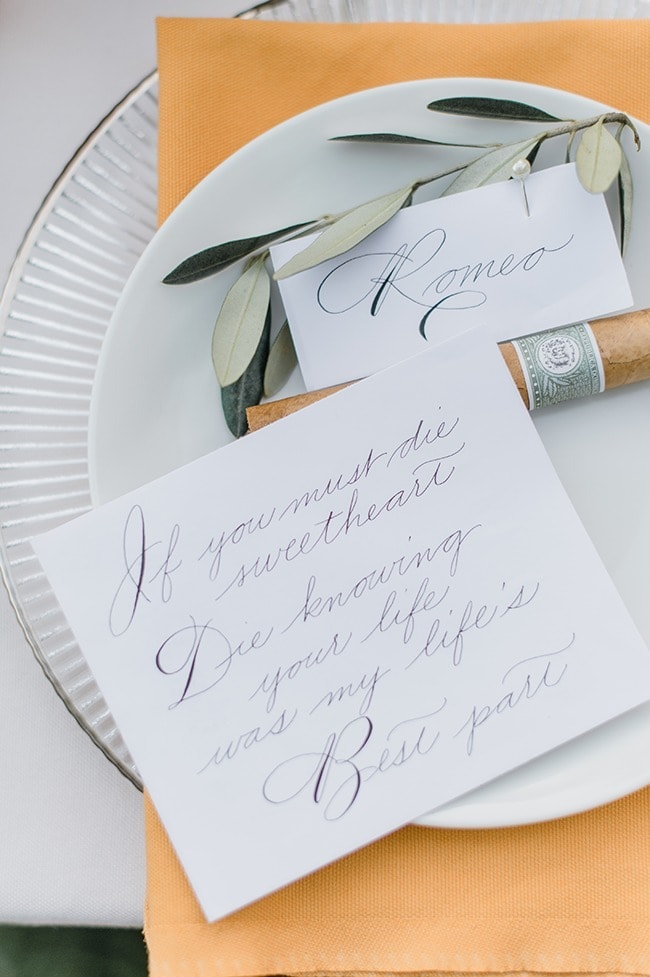 Romeo
If you must die
sweetheart
Die knowing
your life
was my life's
Best part